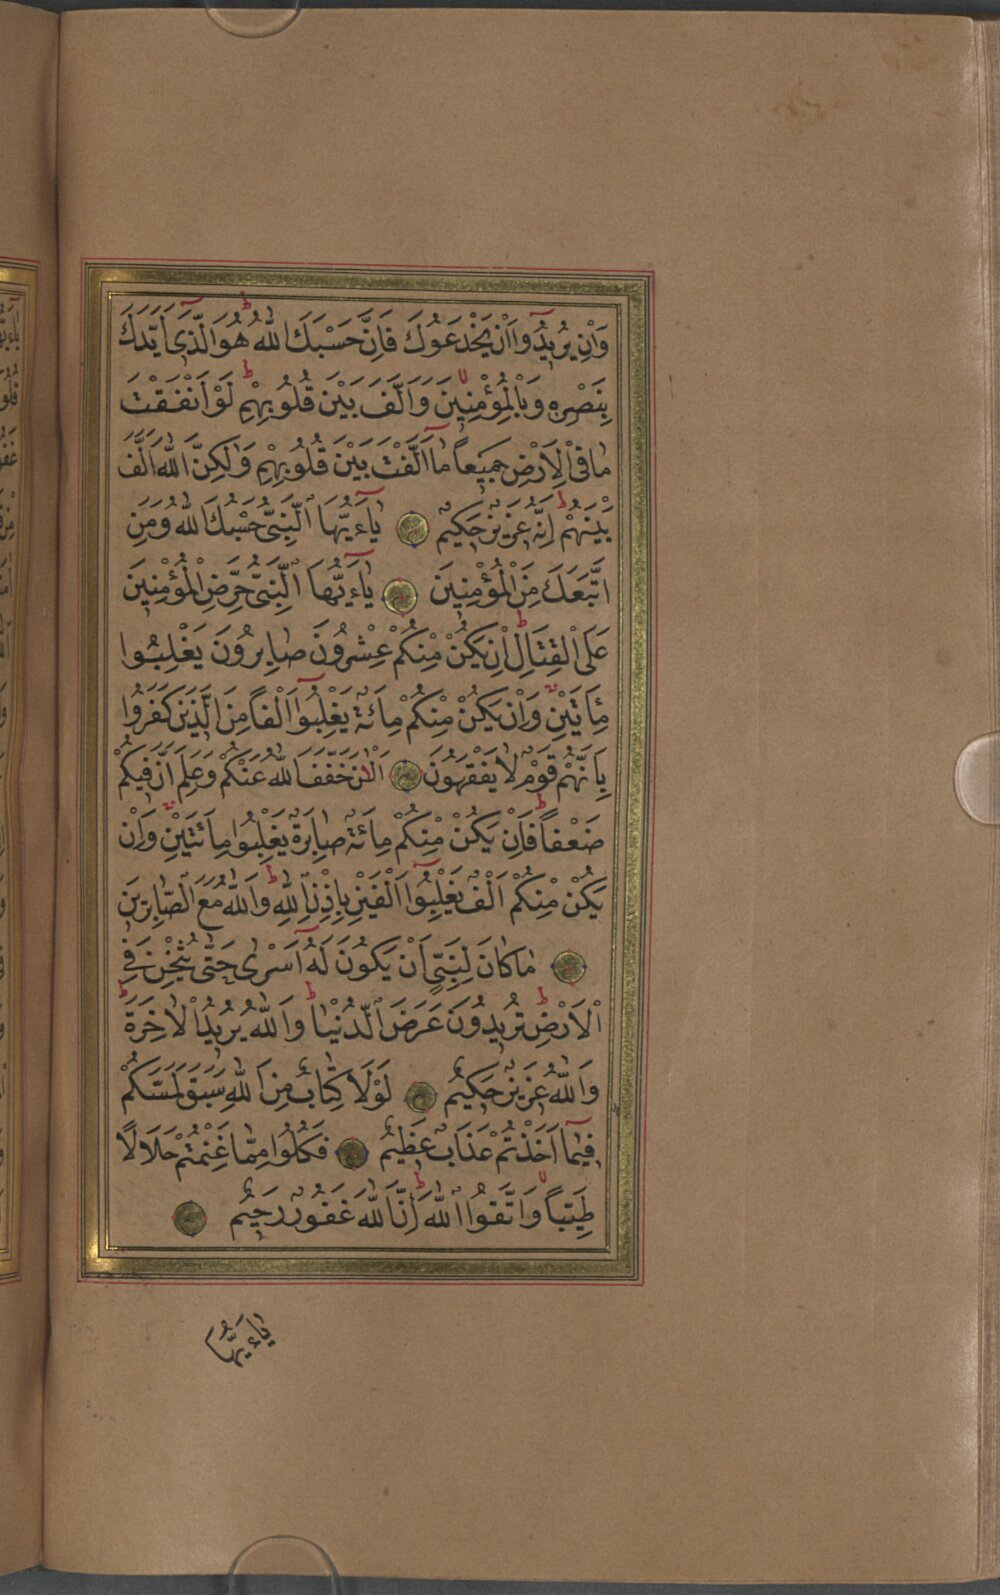 وَاِنْ يُرِيدُٓوا اَنْ يَخْدَعُوكَ فَاِنَّ حَسْبَكَ اللّٰهُ هُوَ الَّذٖٓى اَيَّدَكَ
بِنَصْرِهٖ وَبِالْمُؤْمِنٖينَ وَاَلَّفَ بَيْنَ قُلُوبِهِمْ لَوْ اَنْفَقْتَ
مَا فِى الْاَرْضِ جَمٖيعًا مَٓا اَلَّفْتَ بَيْنَ قُلُوبِهِمْ وَلٰكِنَّ اللّٰهَ اَلَّفَ
بَيْنَهُمْ اِنَّهُ عَزٖيزٌ حَكٖيمٌ يَٓاءَيُّهَا النَّبِىُّ حَسْبُكَ اللّٰهُ وَمَنِ
اتَّبَعَكَ مِنَ الْمُؤْمِنٖينَ يَٓاءَيُّهَا النَّبِىُّ حَرِّضِ الْمُؤْمِنٖينَ
عَلَى الْقِتَالِ اِنْ يَكُنْ مِنْكُمْ عِشْرُونَ صَابِرُونَ يَغْلِبُوا
مِاَتَيْنِ وَاِنْ يَكُنْ مِنْكُمْ مِائَةٌ يَغْلِبُٓوا اَلْفًا مِنَ الَّذٖينَ كَفَرُوا
بِاَنَّهُمْ قَوْمٌ لَا يَفْقَهُونَ اَلْاٰنَ خَفَّفَ اللّٰهُ عَنْكُمْ وَعَلِمَ اَنَّ فٖيكُمْ
ضَعْفًا فَاِنْ يَكُنْ مِنْكُمْ مِائَةٌ صَابِرَةٌ يَغْلِبُوا مِائَتَيْنِ وَاِنْ
يَكُنْ مِنْكُمْ اَلْفٌ يَغْلِبُٓوا اَلْفَيْنِ بِاِذْنِ اللّٰهِ وَاللّٰهُ مَعَ الصَّابِرٖينَ
مَا كَانَ لِنَبِىٍّ اَنْ يَكُونَ لَهُٓ اَسْرٰى حَتّٰى يُثْخِنَ فِى
الْاَرْضِ تُرٖيدُونَ عَرَضَ الدُّنْيَا وَاللّٰهُ يُرٖيدُ الْاٰخِرَةَ
وَاللّٰهُ عَزٖيزٌ حَكٖيمٌ لَوْلَا كِتَابٌ مِنَ اللّٰهِ سَبَقَ لَمَسَّكُمْ
فٖيمَٓا اَخَذْتُمْ عَذَابٌ عَظٖيمٌ فَكُلُوا مِمَّا غَنِمْتُمْ حَلَالًا
طَيِّبًا وَاتَّقُوا اللّٰهَ اِنَّ اللّٰهَ غَفُورٌ رَحٖيمٌ
يَاءَيُّهَا